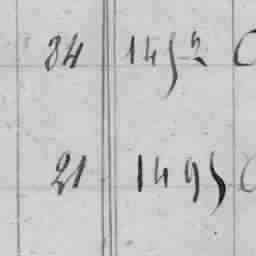 34 1452
21 1495